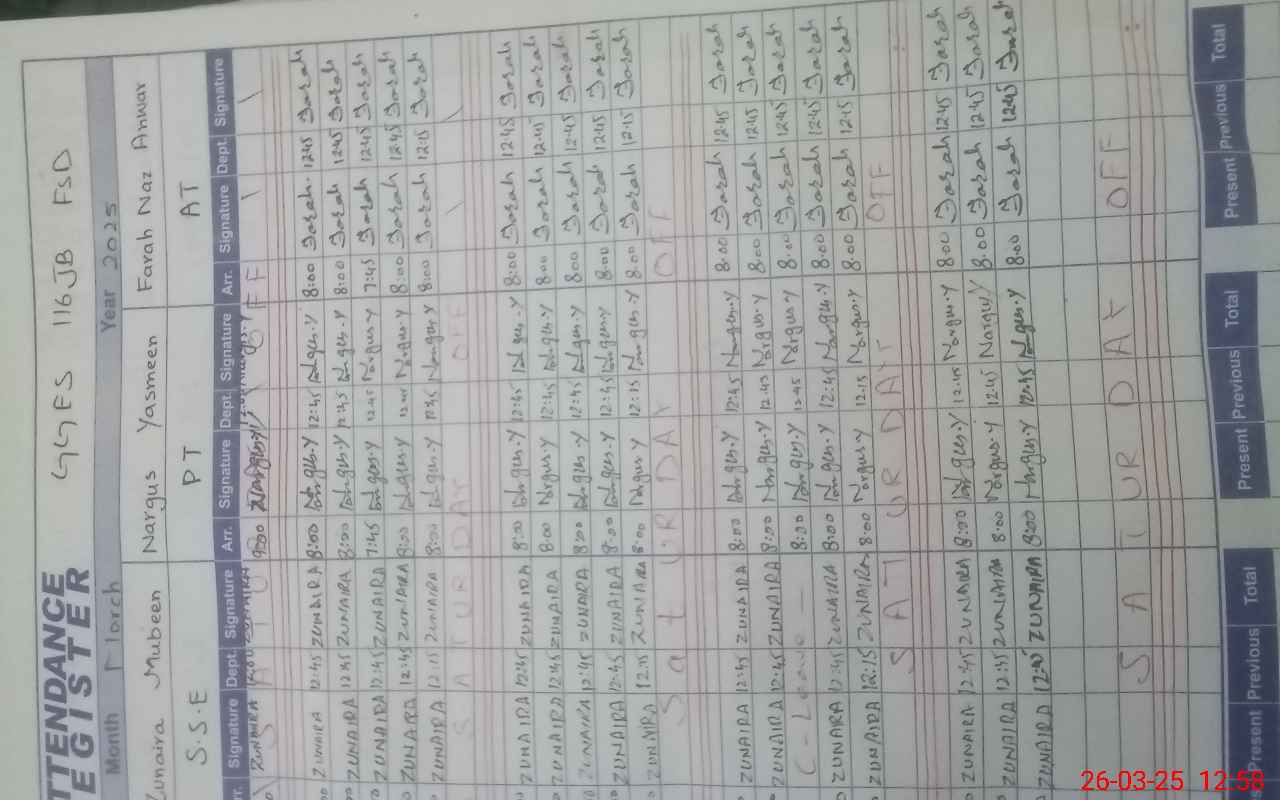 GGES 116 JB FSD
TTENDANCE
EGISTER
Month March Year 2025
Zunaira Mubeen Nargus Yasmeen Farah Naz Anwar
S.S.E PT AT
rr. Signature Dept. Signature Arr. Signature Dept. Signature Arr. Signature Dept. Signature
ZUNAIRA 12:45 ZUNAIRA 8:00 Nargus.Y 12:45 Nargus.Y 8:00 Farah 12:45 Farah
ZUNAIRA 12:45 ZUNAIRA 8:00 Nargus.Y 12:45 Nargus.Y 8:00 Farah 12:45 Farah
ZUNAIRA 12:45 ZUNAIRA 7:45 Nargus.Y 12:45 Nargus.Y 7:45 Farah 12:45 Farah
ZUNAIRA 12:45 ZUNAIRA 8:00 Nargus.Y 12:45 Nargus.Y 8:00 Farah 12:45 Farah
ZUNAIRA 12:15 ZUNAIRA 8:00 Nargus.Y Nargus.Y 8:00 Farah 12:15 Farah
SATURDAY OFF
ZUNAIRA 12:45 ZUNAIRA 8:00 Nargus.Y 12:45 Nargus.Y 8:00 Farah 12:45 Farah
ZUNAIRA 12:45 ZUNAIRA 8:00 Nargus.Y 12:45 Nargus.Y 8:00 Farah 12:45 Farah
ZUNAIRA 12:45 ZUNAIRA 8:00 Nargus.Y 12:45 Nargus.Y 8:00 Farah 12:45 Farah
ZUNAIRA 12:45 ZUNAIRA 8:00 Nargus.Y 12:45 Nargus.Y 8:00 Farah 12:45 Farah
ZUNAIRA 12:15 ZUNAIRA 8:00 Nargus.Y 12:15 Nargus.Y 8:00 Farah 12:15 Farah
SatURDAY OFF
ZUNAIRA 12:45 ZUNAIRA 8:00 Nargus.Y 12:45 Nargus.Y 8:00 Farah 12:45 Farah
ZUNAIRA 12:45 ZUNAIRA 8:00 Nargus.Y 12:45 Nargus.Y 8:00 Farah 12:45 Farah
C - Leave - 8:00 Nargus.Y 12:45 Nargus Y 8:00 Farah 12:45 Farah
ZUNAIRA 12:45 ZUNAIRA 8:00 Nargus.Y 12:45 Nargus.Y 8:00 Farah 12:45 Farah
ZUNAIRA 12:15 ZUNAIRA 8:00 Nargus Y 12:15 Nargus.Y 8:00 Farah 12:15 Farah
SATURDAY OFF
ZUNAIRA 12:45 ZUNAIRA 8:00 Nargus.Y 12:45 Nargus.Y 8:00 Farah 12:45 Farah
ZUNAIRA 12:45 ZUNAIRA 8:00 Nargus.Y 12:45 Nargus Y 8:00 Farah 12:45 Farah
ZUNAIRA 12:45 ZUNAIRA 8:00 Nargus Y 12:45 Nargus.Y 8:00 Farah 12:45 Farah
SATURDAY OFF
Present Previous Total Present Previous Total Present Previous Total
26-03-25 12:58